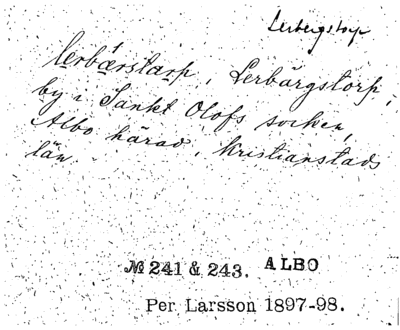 Lerbergstorp
lerbærstarp, Lerbärgstorp,
by i Sankt Olofs socken,
Albo härad, Kristianstads
län.
№ 241 & 243. ALBO
Per Larsson 1897-98.